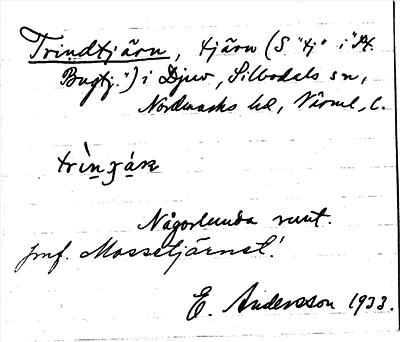 Trindtjärn, tjärn (S. "tj." i "St.
Bugtj.") i Djuv, Silbodals sn,
Nordmarks hd, Värml. l.
trìn
Någorlunda runt.
jmf. Mossetjärnet!
E. Andersson 1933.